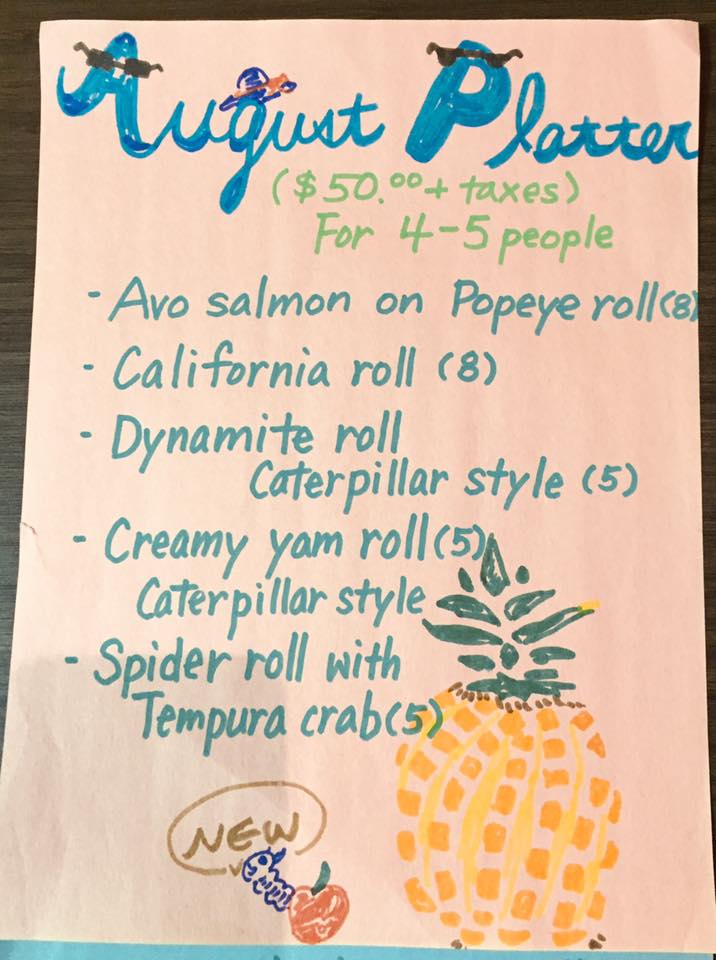 August Platter
($50.00 + taxes)
For 4-5 people
- Avo salmon on Popeye roll (8)
- California roll (8)
- Dynamite roll
Caterpillar style (5)
- Creamy yam roll (5)
Caterpillar style
- Spider roll with
Tempura crab (5)
NEW